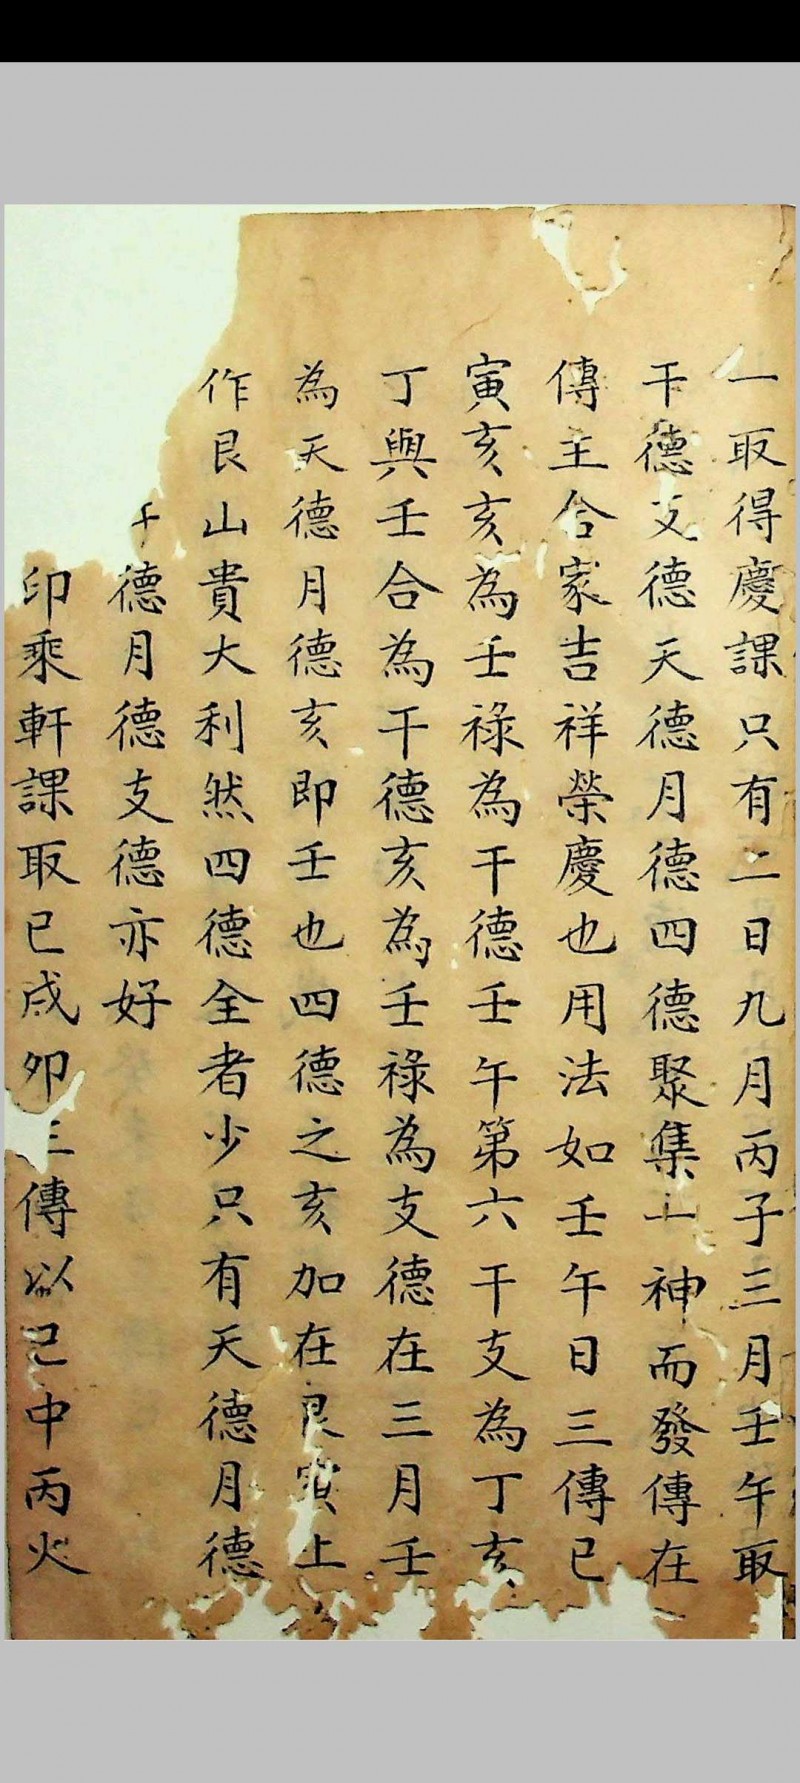 一取得慶課只有二日九月丙子三月壬午取
干德支德天德月德四德聚集一神而發傳在
傳主合家吉祥榮慶也用法如壬午日三傳已
寅亥亥為壬祿為干德壬午第六干支為丁亥
丁與壬合為干德亥為壬祿為支德在三月壬
為天德月德亥即壬也四德之亥加在艮寅上
作艮山貴大利然四德全者少只有天德月德
干德月德支德亦好
印乘軒課取巳戌卯三傳以巳中丙火